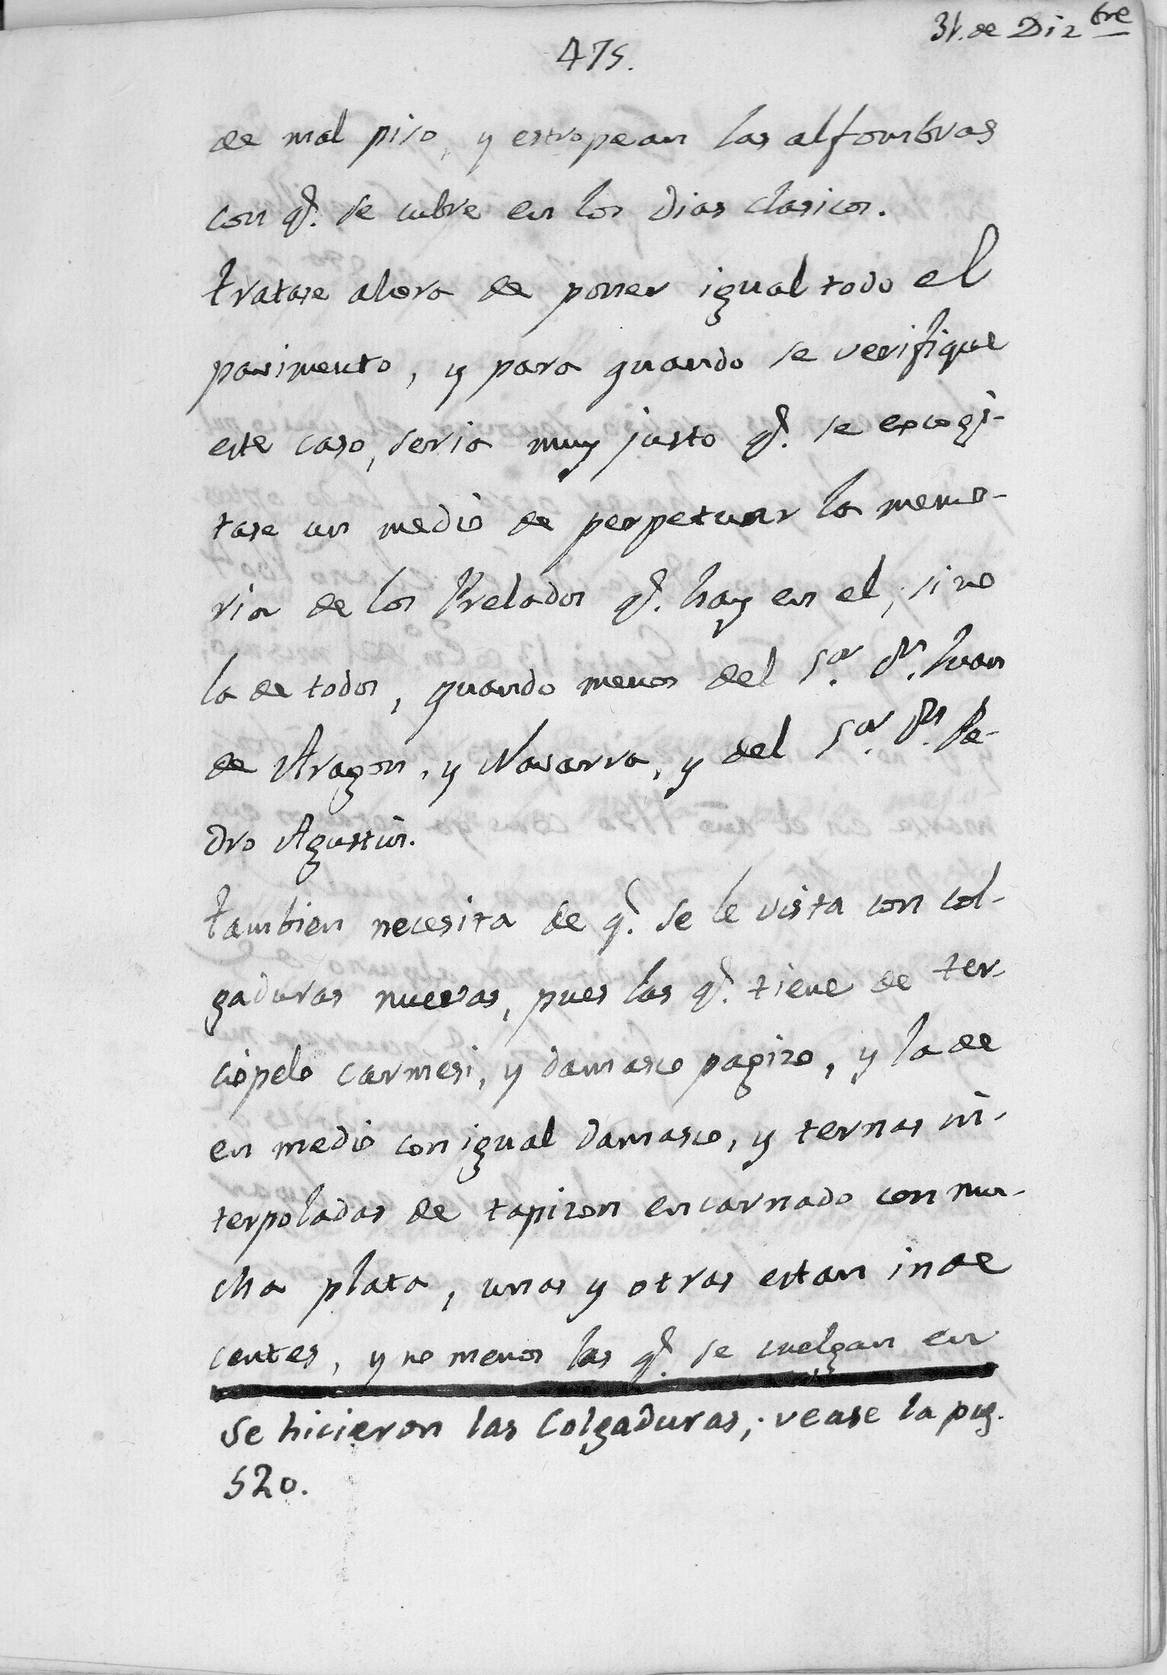 31. de Diz.bre
475.
de mal piso, y estropean las alfombras
con q.e se cubre en los dias clasicos.
tratase ahora de poner igual todo el
pavimento, y para quando se verifique
este caso, seria muy justo q.e se excogi-
tase un medio de perpetuar la memo-
ria de los Prelados q.e hay en el, sino
la de todos, quando menos del S.or D.n Juan
de Aragon, y Navarra, y del S.or D.n Pe-
dro Agustin.
tambien necesita de q.e se le vista con col-
gaduras nuevas, pues las q.e tiene de ter-
ciopelo carmesi, y damasco pagizo, y la de
en medio con igual damasco, y ternas in-
terpoladas de tapizon encarnado con mu-
cha plata, unas y otras estan inde
centes, y no menos las q.e se cuelgan en
se hicieron las Colgaduras; vease la pag.
520.